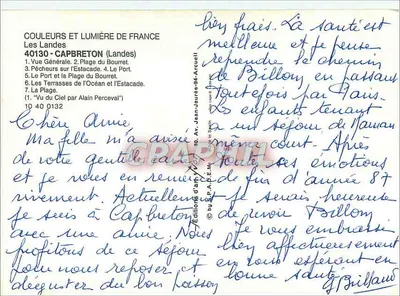 COULEURS ET LUMIÈRE DE FRANCE
Les Landes
40130 - CAPBRETON (Landes)
1. Vue Générale. 2. Plage du Bourret.
3. Pêcheurs sur l'Estacade. 4. Le Port.
5. Le Port et la Plage du Bourret.
6. Les Terrasses de l'Océan et l'Estacade.
7. La Plage.
(1. "Vu du Ciel par Alain Perceval")
10 40 0132
Chère Amie
Ma fille m'a avisé
de votre gentille
et je vous en remercie
vivement. Actuellement
je suis à Capbreton
avec une amie. Nous
profitons de ce séjour
pour nous reposer et
déguster du bon poisson
bien frais. La santé est
meilleure et je pense
reprendre le chemin
de Billom en passant
toutefois par Paris.
Les enfants tenant
à un séjour de Maman
même court. Après
toutes ces émotions
de fin d'année 87
je serais heureuse
de revoir Billom
Je vous embrasse
bien affectueusement
en vous espérant en
bonne santé.
G Brillaud
Av. Jean-Jaurès
CPARAMA